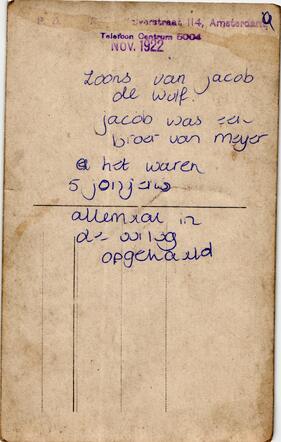 straat 114, Amsterdam
Telefoon Centrum 5004
NOV. 1922
Zoons van Jacob
de Wolf.
Jacob was een
broer van Meyer
het waren
5 jonjens
allemaal in
de oorlog
opgehaald